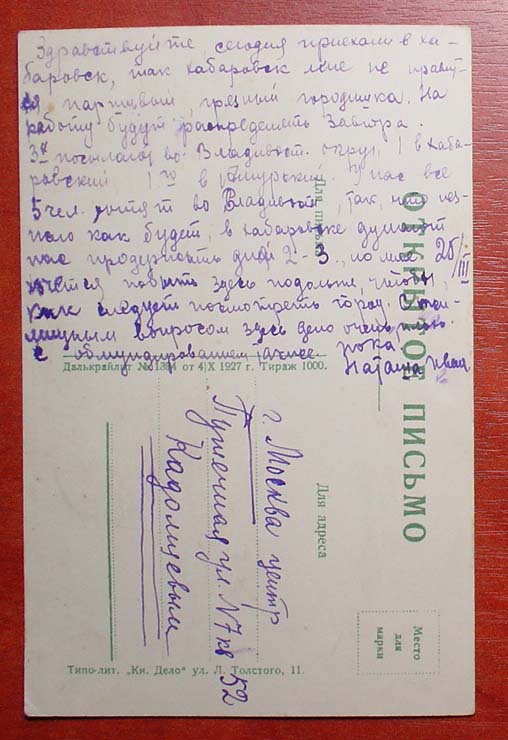 Здравствуйте сегодня приехали в Ха-
баровск, так Хабаровск мне не нравит-
ся паршивый, грязный городишка. На
работу будут распределять завтра.
3х посылают во Владивост. округ, 1 в Хаба-
ровский 1го в Амурский. У нас все
5 чел. хотят во Владивост, так, что неиз-
как будет, в Хабаровске думают
нас продержать дня 2-3, но мне
хочется побыть здесь подольше, чтобы
как следует посмотреть город. С жи-
лищным вопросом здесь дело очень
с обмундированием пока
Наташа
25/III
ОТКРЫТОЕ ПИСЬМО
Для письма
Далькрайлит № 1394 от 4|X 1927 г. Тираж 1000.
Для адреса
г. Москва центр
Пушечная ул. N7 кв 52
Кадомцевым
Место
для
марки
Типо-лит. „Кн. Дело" ул. Л. Толстого, 11.